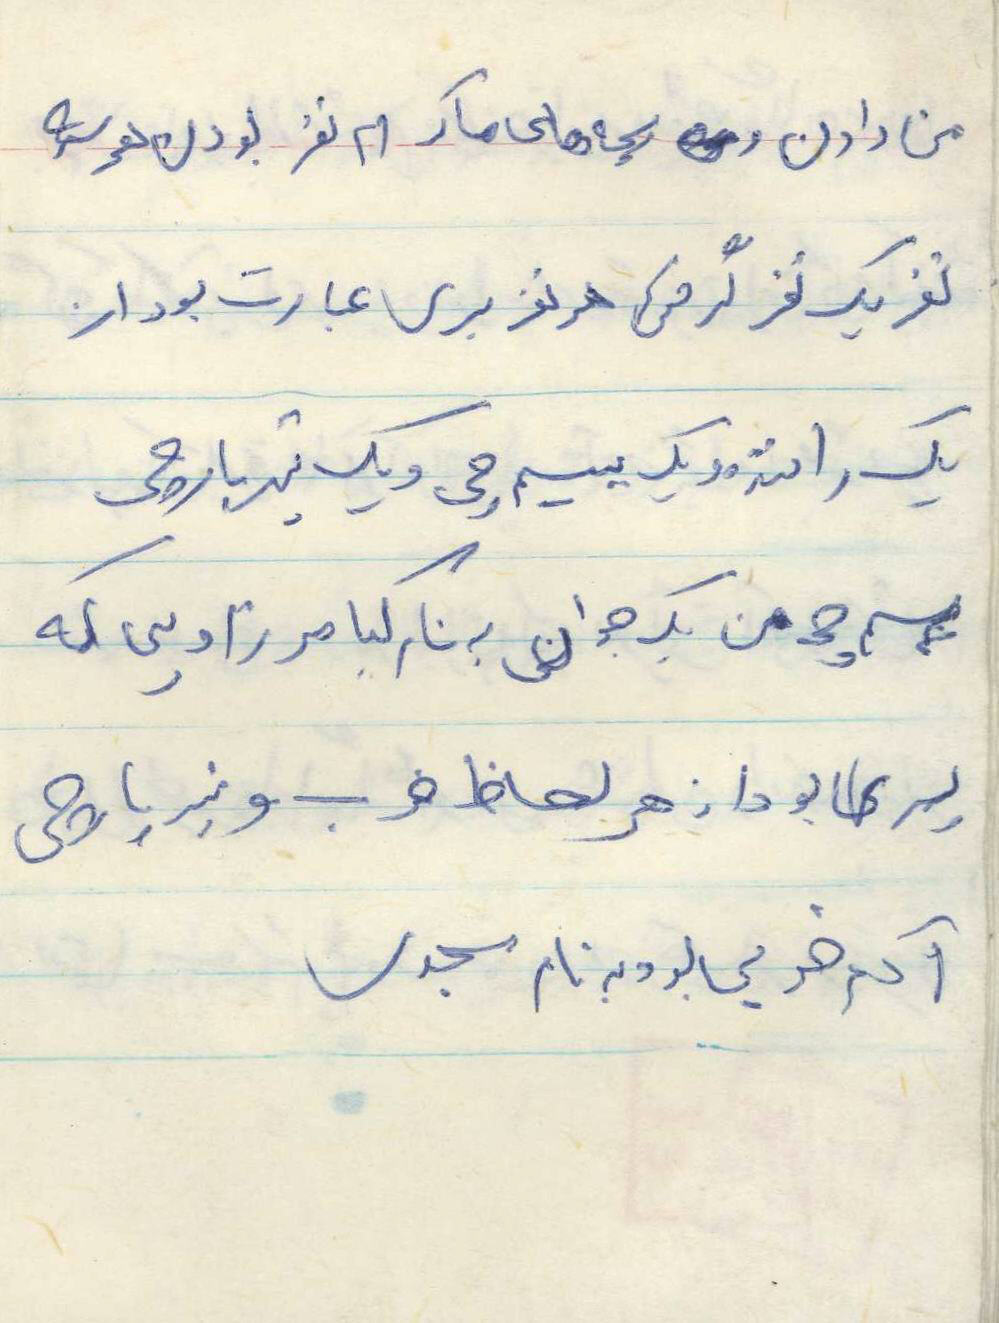 من دادن و بچه‌های ما که ام نفر بودن هر سه
نفر یک نفر گرفتن هر نفر بری عبارت بود از
یک راننده و یک بیسیم چی و یک تیربارچی
بیسیم چی من یک جوانی به نام کیامرز اویسی که
پسری بود از هر لحاظ خوب و تیربارچی
آدم خوبی بود به نام سجدی